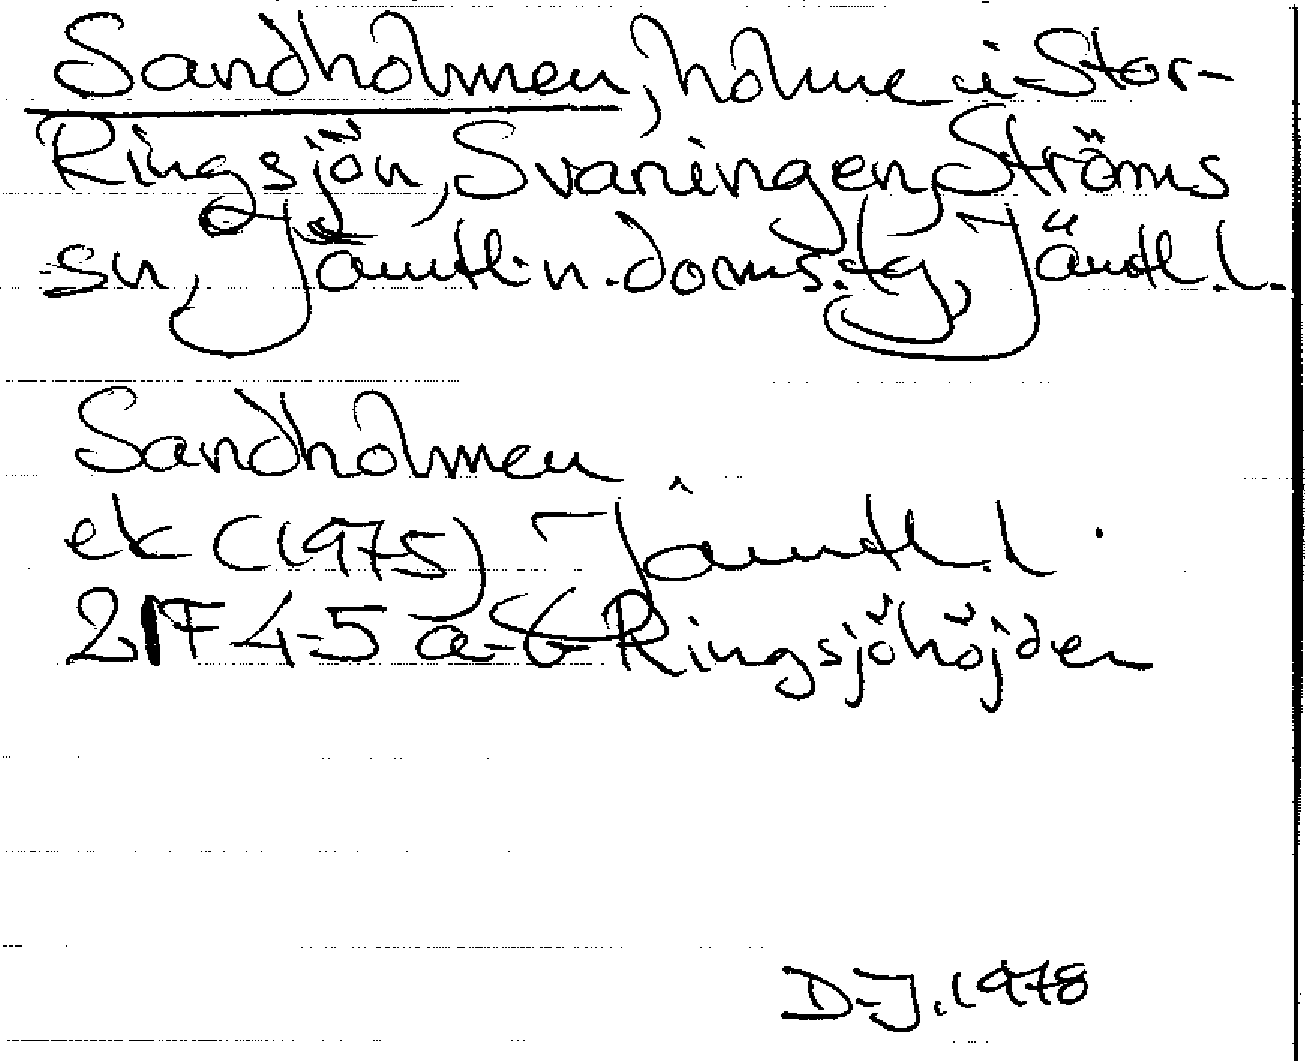 Sandholmen, holme i Stor-
Ringsjön, Svaningen, Ströms
sn, Jämtl. n. doms. tg, Jämtl. l.
Sandholmen
ek (1975) Jämtl. l.
21F 4-5 a-b Ringsjöhöjden
D-J. 1978